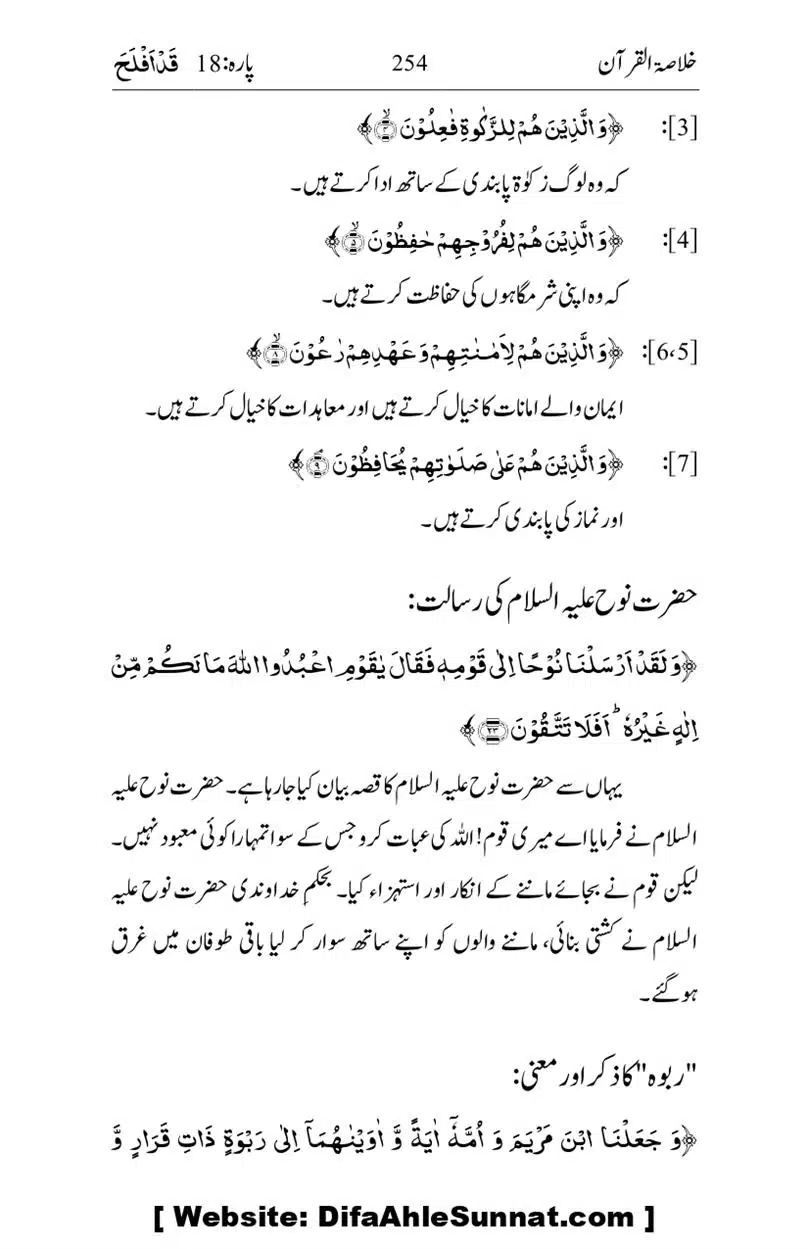 خلاصۃ القرآن 254 پارہ:18 قَدْ اَفْلَحَ
[3]: ﴿وَ الَّذِیْنَ هُمْ لِلزَّكٰوةِ فٰعِلُوْنَ ۙ﴿۴﴾﴾
کہ وہ لوگ زکوٰۃ پابندی کے ساتھ ادا کرتے ہیں۔
[4]: ﴿وَ الَّذِیْنَ هُمْ لِفُرُوْجِهِمْ حٰفِظُوْنَ ۙ﴿۵﴾﴾
کہ وہ اپنی شرمگاہوں کی حفاظت کرتے ہیں۔
[6،5]: ﴿وَ الَّذِیْنَ هُمْ لِاَمٰنٰتِهِمْ وَ عَهْدِهِمْ رٰعُوْنَ ۙ﴿۸﴾﴾
ایمان والے امانات کا خیال کرتے ہیں اور معاہدات کا خیال کرتے ہیں۔
[7]: ﴿وَ الَّذِیْنَ هُمْ عَلٰی صَلَوٰتِهِمْ یُحَافِظُوْنَ ۘ﴿۹﴾﴾
اور نماز کی پابندی کرتے ہیں۔
حضرت نوح علیہ السلام کی رسالت:
﴿وَ لَقَدْ اَرْسَلْنَا نُوْحًا اِلٰی قَوْمِهٖ فَقَالَ یٰقَوْمِ اعْبُدُوا اللهَ مَا لَكُمْ مِّنْ
اِلٰهٍ غَیْرُهٗ ؕ اَفَلَا تَتَّقُوْنَ ﴿۲۳﴾﴾
یہاں سے حضرت نوح علیہ السلام کا قصہ بیان کیا جا رہا ہے۔ حضرت نوح علیہ
السلام نے فرمایا اے میری قوم! اللہ کی عبات کرو جس کے سوا تمہارا کوئی معبود نہیں۔
لیکن قوم نے بجائے ماننے کے انکار اور استہزاء کیا۔ بحکمِ خداوندی حضرت نوح علیہ
السلام نے کشتی بنائی، ماننے والوں کو اپنے ساتھ سوار کر لیا باقی طوفان میں غرق
ہو گئے۔
"ربوہ" کا ذکر اور معنی:
﴿وَ جَعَلْنَا ابْنَ مَرْیَمَ وَ اُمَّهٗۤ اٰیَةً وَّ اٰوَیْنٰهُمَاۤ اِلٰی رَبْوَةٍ ذَاتِ قَرَارٍ وَّ
[ Website: DifaAhleSunnat.com ]